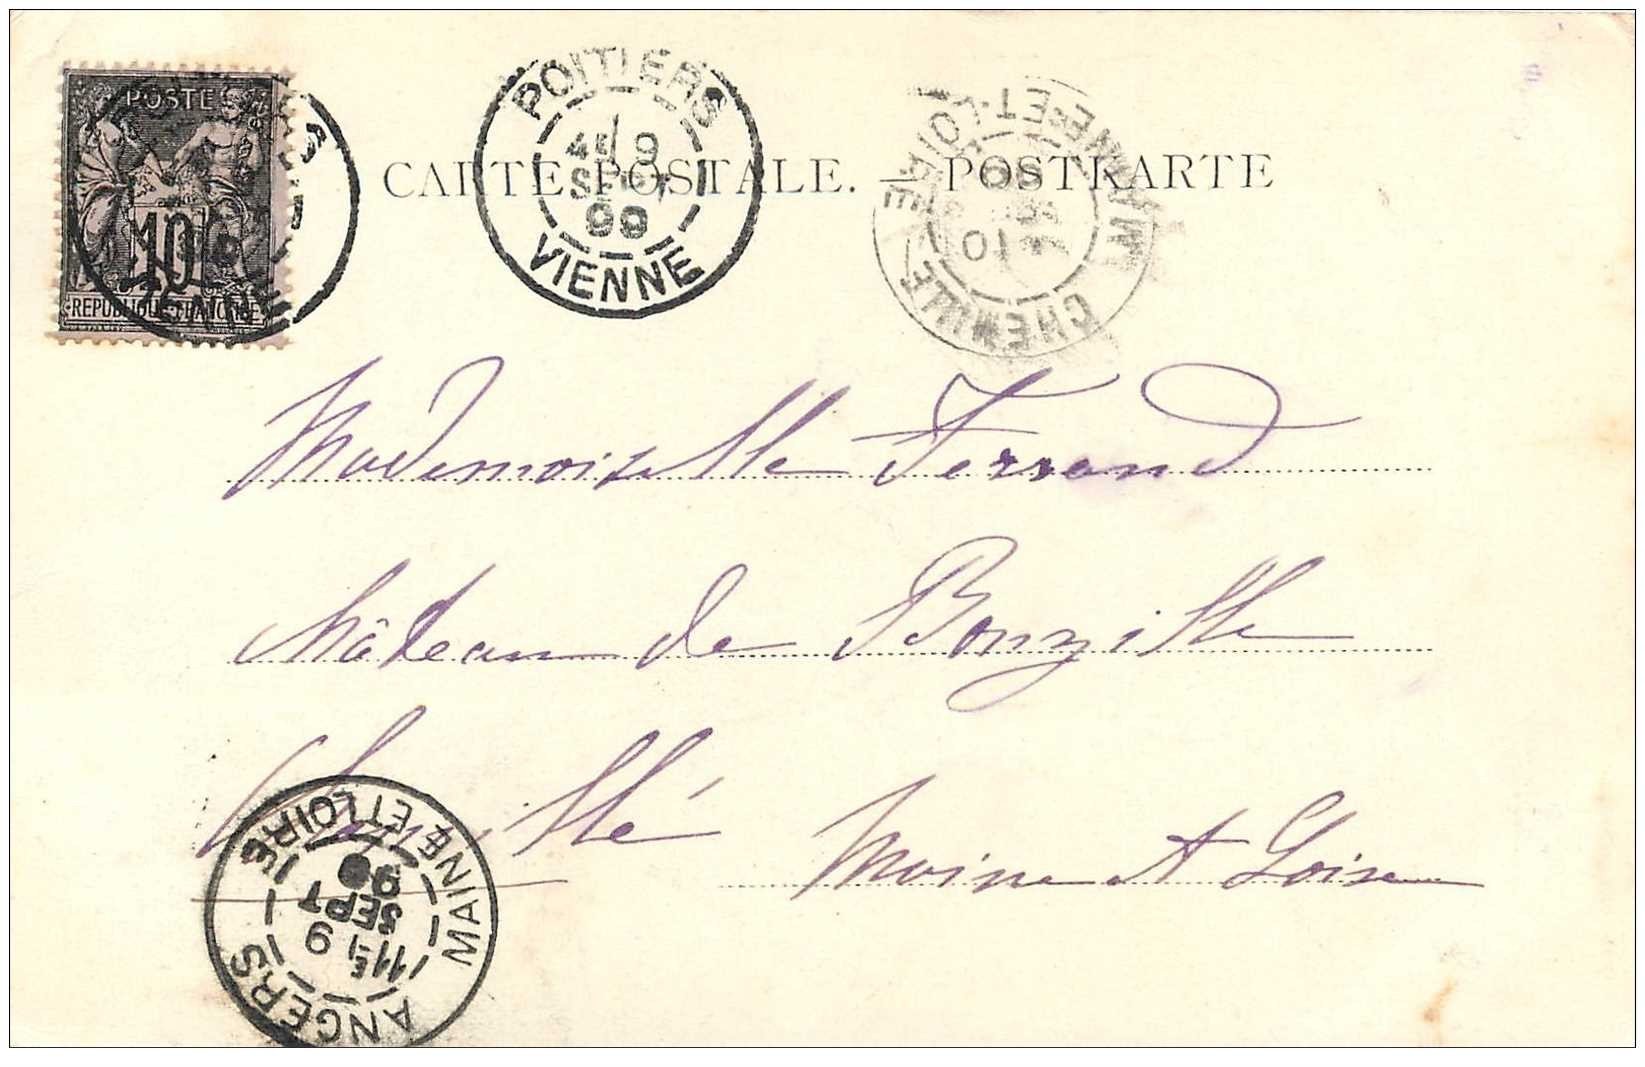 POSTE
10
REPUBLIQUE FRANCAISE
POITIERS
9
SEPT
99
VIENNE
CARTE POSTALE. — POSTKARTE
MAINE-ET-LOIRE
10
CHEMILLÉ
Mademoiselle Ferrand
Château de Bonzillé
Chemillé
Maine et Loire
MAINE ET LOIRE
11
9
SEPT
99
ANGERS